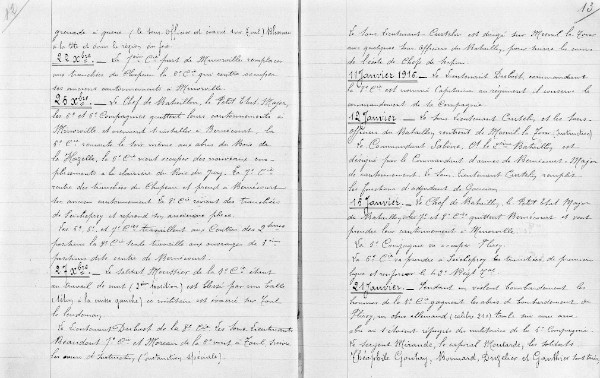 12
grenade à queue; (le sous officier est évacué sur Toul) Blessures
à la tête et dans la région
22 Xbre. — La 7ème Cie part de Minorville remplacer
aux tranchées de Chapeau la 8e Cie qui rentre occuper
ses anciens cantonnements à Minorville.
26 Xbre. — Le Chef de Bataillon, le Petit Etat Major,
les 5e et 8e Compagnies quittent leurs cantonnements à
Minorville et viennent s'installer à Bernécourt. La
8e Cie remonte le soir même aux abris du Bois de
la Hazelle, la 5e Cie vient occuper des nouveaux em-
placements à la lisière du Bois de Jury. La 7e Cie
rentre des tranchées de Chapeau et prend à Bernécourt
son ancien cantonnement. La 6e Cie revient des tranchées
de Seicheprey et reprend ses anciennes places.
Les 5e, 6e, et 7e Cies travaillent aux Centres des 2èmes
positions la 8e Cie seule travaille aux ouvrages de 1ère
position et du centre de Bernécourt.
27 Xbre. — Le soldat Moussier de la 5e Cie étant
au travail de nuit (2ème position) est blessé par une balle
à la cuisse gauche) ce militaire est évacué sur Toul
le lendemain.
Le Lieutenant Duclost de la 8e Cie les Sous-Lieutenants
Beaudont 7e Cie et Moreau de la 5e vont à Toul suivre
les cours d'instruction, (instruction spéciale).
13
Le Sous Lieutenant Cartely est dirigé sur Mesnil la Tour
avec quelques Sous officiers du Bataillon, pour suivre le cours
de l'école de Chef de Section.
11 Janvier 1916. — Le Lieutenant Duclost, commandant
la 8e Cie est nommé Capitaine au régiment et conserve le
commandement de la Compagnie.
12 Janvier — Le Sous Lieutenant Cartely, et les Sous-
officiers du Bataillon rentrent de Mesnil la Tour (instruction)
Le Commandant Sabene, Ct le 2ème Bataillon est
désigné par le Commandant d'armes de Bernécourt - Major
de cantonnement. Le Sous Lieutenant Cartely remplit
les fonctions d'adjudant de Garnison.
16 Janvier. — Le Chef de Bataillon, le Petit Etat Major
de Bataillon, les 7e et 8e Cies quittent Bernécourt et vont
prendre leurs cantonnements à Minorville.
La 5e Compagnie va occuper Flirey.
La 6e Cie va prendre à Seicheprey les tranchées de première
ligne et renforcer le 43e Régt Tal.
21 Janvier. — Pendant un violent bombardement les
hommes de la 5e Cie gagnent les abris de bombardement de
Flirey, un obus allemand (calibre 210) tombe sur un
abri où s'étaient réfugiés des militaires de la 5e Compagnie.
Le Sergent Mirande, le caporal Moutarde, les soldats
Théophile Gouhey, Bernard, Drozélier et Gauthier